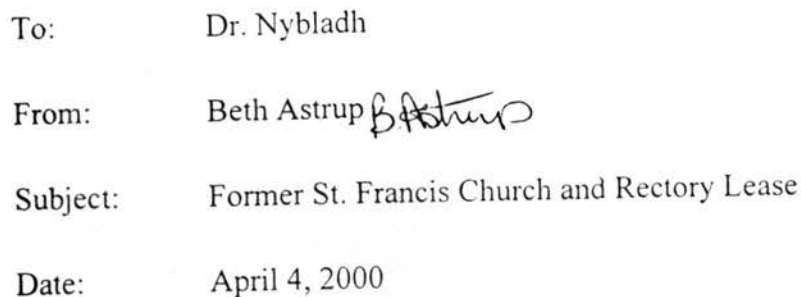 To: Dr. Nybladh
From: Beth Astrup B. Astrup
Subject: Former St. Francis Church and Rectory Lease
Date: April 4, 2000